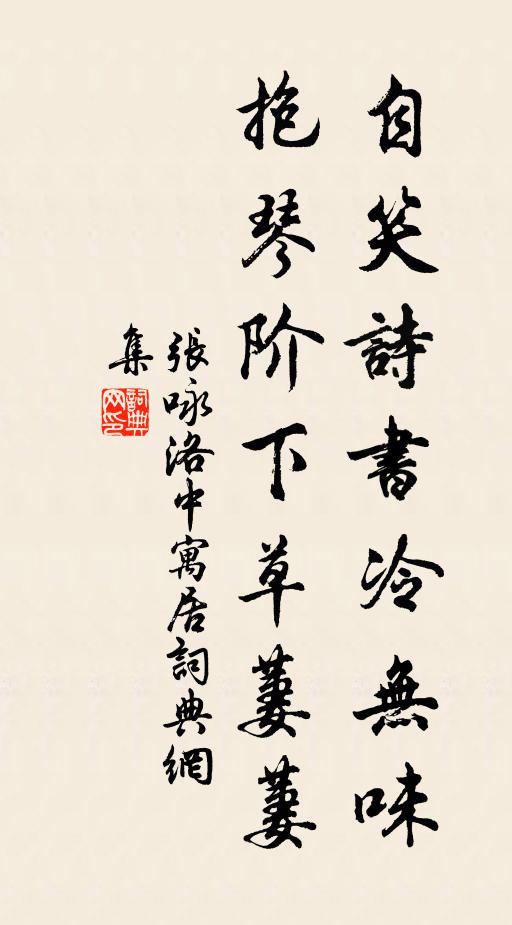 自笑詩書冷無味
抱琴阶下草萋萋
張咏洛中寓居詞典網
集
詞典
网印